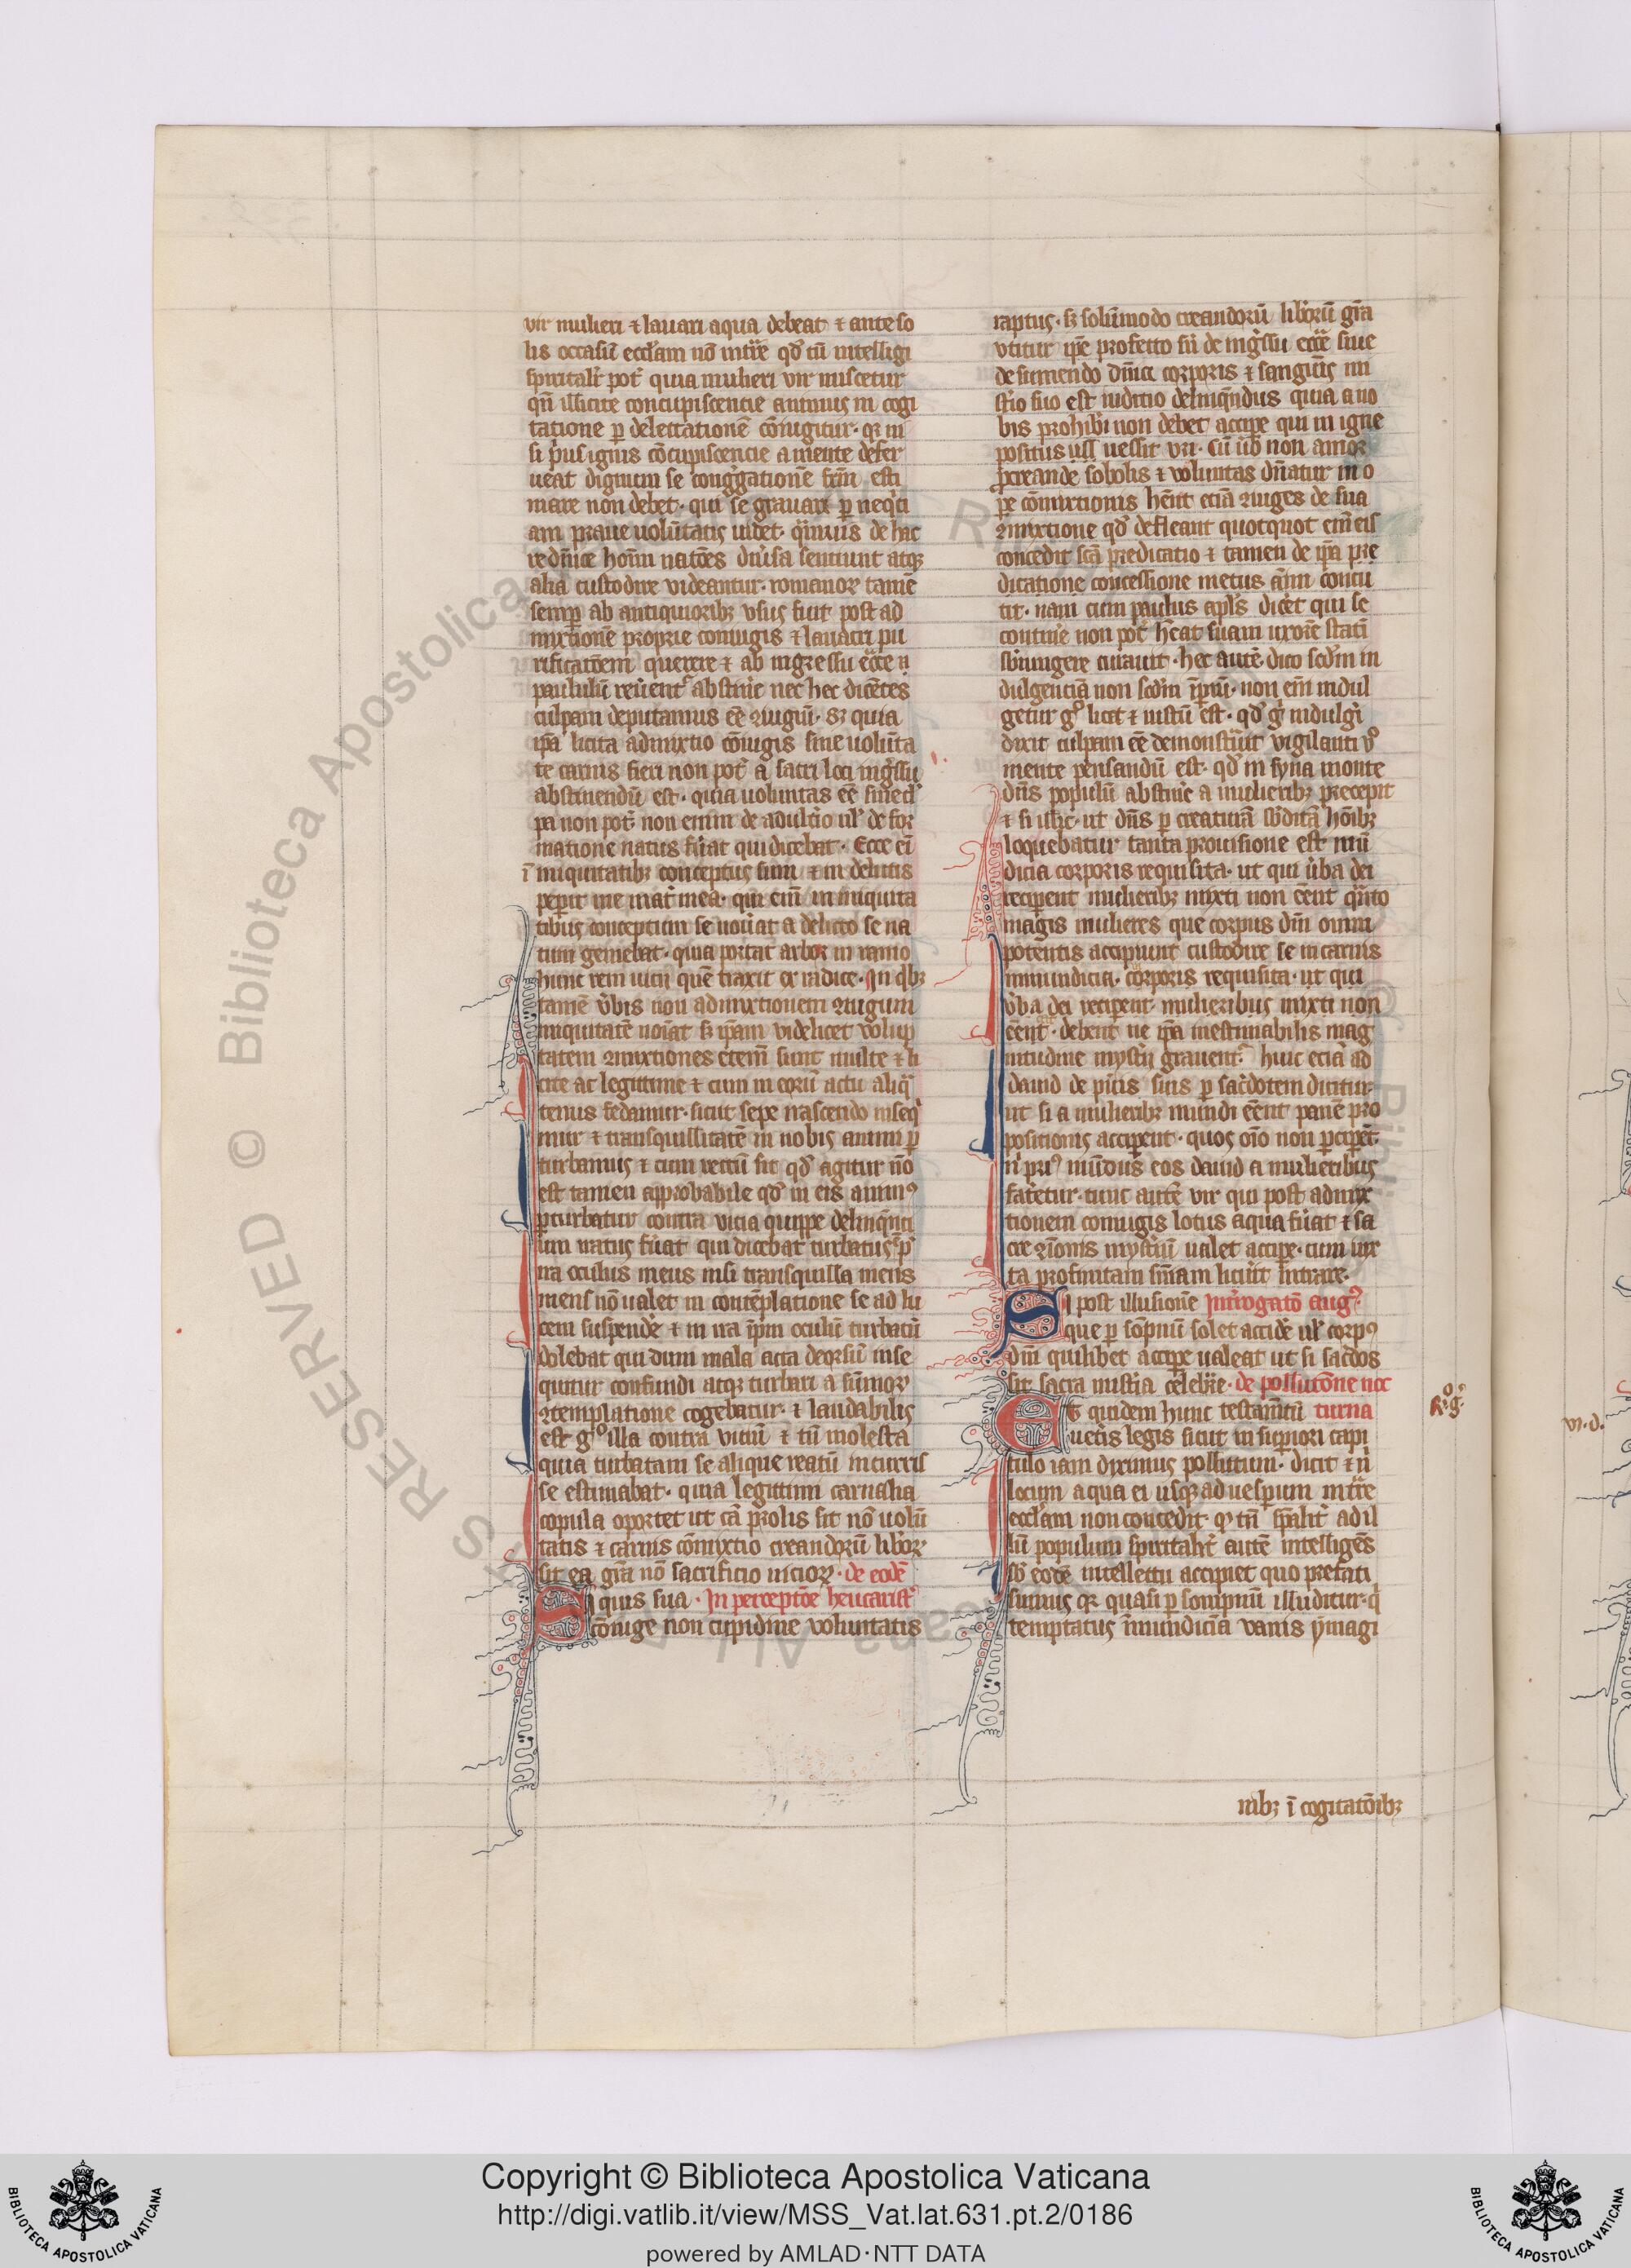 vir mulieri ⁊ lauari aqua debeat ⁊ ante so
lis occasū eccl̄am nō int̾re qd̾ tn̄ intelligi
spiritalit̾ pot̾ quia mulieri vir miscetur
qn̄ illicite concupiscencie animus in cogi
tatione ꝑ delectationē cōiugitur· qꝛ ni
si p̾us ignis cōcupiscencie a mente defer
ueat dignum se cong̾gationē frm̄ esti
mare non debet· qui se grauari ꝑ neq̾ci
am praue uolūtatis uidet· q̾muis de hac
re diu̾se hoīm natōes diu̾sa sentiunt atqꝫ
alia custodire videantur· romanoꝝ tamē
semꝑ ab antiquioribꝫ vsus fuit post ad
mixtionē proprie coniugis ⁊ lauacri pu
rificatōem querere ⁊ ab ingressu eccͤe
paululū reu̾ent̾ abstin̾e nec hec dicētes
culpam deputamus eē ꝯiugiū· sꝫ quia
ip̄a licita admixtio cōiugis sine uolūta
te carnis fieri non pot̾ a sacri loci ing̾ssu
abstinendū est· quia uoluntas eē sine cl̾
pa non pot̾· non enim de adult̾io ul̾ de for
nicatione natus fu̾at qui dicebat· Ecce ei̅
ī iniquitatibꝫ conceptus sum ⁊ in delictis
peꝑit me mat̾ mea· qui eni̅ in iniquita
tibus conceptum se nou̾at a delicto se na
tum gemebat· quia portat arbor in ramo
hunc rem uicij quē traxit ex radice· In qͥbꝫ
tamē v̾bis non admixtionem ꝯiugum
iniquitatē noīat sꝫ ip̄am videlicet volup
tatem ꝯmixtiones etenī sunt multe ⁊ li
cite ac legittime ⁊ cum in eorū actu aliq̾
tenus fedamur· sicut sepe irascendo inseq̾
mur ⁊ transquillitatē in nobis animi ꝑ
turbamus ⁊ cum rectū sit qd̾ agitur nō
est tamen approbabile qd̾ in eis animꝰ
ꝑturbatur contra vicia quippe delinq̾nti
um iratus fu̾at qui dicebat turbatus ē p̾
ira oculus meus nisi transquilla mens
mens nō ualet in contēplatione se ad lu
cem suspende̾ ⁊ in ira ip̄m oculū turbatū
dolebat qui dum mala acta deorsū inse
quitur confundi atqꝫ turbari a sūmoꝝ
ꝯtemplatione cogebatur· ⁊ laudabilis
est gͦ illa contra viciū ⁊ tn̄ molesta
quia turbatam se alique reatū incurris
se estimabat· quia legittimi carnalis
copula oportet ut cā prolis sit nō uolū
tatis ⁊ carnis cōmixtio creandorū lib̾oꝝ
sit ea grā nō sacrificio uicioꝝ· de eodē
Si quis sua· In perceptōe heucarist̾
cōiuge non cupidine voluntatis
raptus· sꝫ solūmodo creandorū lib̾orū grā
vtitur ip̄e profecto siū de ing̾ssu eccͤe siue
de sumendo dn̄ici corporis ⁊ sanguīs mi
st̾io suo est iudicio delinq̾ndus quia a no
bis prohib̾i non debet accipe qui in igne
positus
ꝓcreande sobolis ⁊ voluntas dn̄atur in o
pe cōmixtionis hēnt eciā ꝯiuges de sua
ꝯmixtione qd̾ defleant quotquot eni̅ eis
concedit scā predicatio ⁊ tamen de ip̄a pre
dicatione concessione metus a̅im concu
tit· nam cum paulus apl̄s dic̾et qui se
contin̾e non pot̾ hēat suam uxorē statī
sb̾iungere curauit· hec autē dico scd̾m in
dulgenciā non scd̾m ip̄riū· non eni̅ indul
getur qͦ licet ⁊ iustū est· qd̾ g̾ indulgi
dixit culpam eē demonst̾uit vigilanti vͦ
mente pensandū est· qd̾ in syna monte
dn̄s populū abstin̾e a mulieribꝫ precepit
⁊ si ill̾ic ut dn̄s ꝑ creaturā sb̾ditā hoībꝫ
loquebatur tanta prouisione est mū
dicia corporis requisita· ut qui u̾ba dei
reciperent mulieribꝫ mixti non eēnt q̾nto
magis mulieres que corpus dn̄i omni
potentis accipiunt custodire se in carnis
immundicia· corporis requisita· ut qui
v̾ba dei recipent mulieribus mixti non
eēnt· debent ne ip̄a inestimabilis mag
nitudine myst̾ij grauent̾· huic eciā ad
dauid de pu̾is suis ꝑ sac̾dotem dicitur
ut si a mulieribꝫ mundi eēnt panē pro
positionis acciperent· quos oīo non ꝑcipet̾
n̾ priꝰ mūdus eos dauid a mulieribus
fatetur· tunc autē vir qui post admix
tionem coniugis lotus aqua fu̾at ⁊ sa
cre ꝯīonis myst̾iū ualet accipe· cum iux
ta profinitam sn̄iam licu̾it intrare·
Si post illusionē Int̾rogatō augꝰ
que ꝑ sōpniū solet accide̾ ul̾ corpꝰ
dn̄i quilibet accipe ualeat ut si sac̾dos
sit sacra mist̾ia celebre̾· de pollutōne noc
Et quidem hunc testam̄tū turna
uet̾is legis sicut in suꝑiori capi
tulo iam diximus pollutum· dicit ⁊ n̾
locum aqua ei usqꝫ ad uesperum int̾re
eccl̄am non concedit qͦ tn̄ sp̄alit̾ ad il
lū populum spiritalit̾ autē intelligēs
sb̾ eodē intellectu accipiet quo prefati
sumus qꝛ quasi ꝑ sompnū illuditur· q̾
temptatus īmundicia vanis ymagi
Rͦ·gͥ·
vi·d·
nibꝫ ī cogitatōibꝫ
© Biblioteca Apostolica Vaticana ALL RIGHTS RESERVED
Copyright © Biblioteca Apostolica Vaticana
http://digi.vatlib.it/view/MSS_Vat.lat.631.pt.2/0186
powered by AMLAD·NTT DATA
BIBLIOTECA APOSTOLICA VATICANA
BIBLIOTECA APOSTOLICA VATICANA